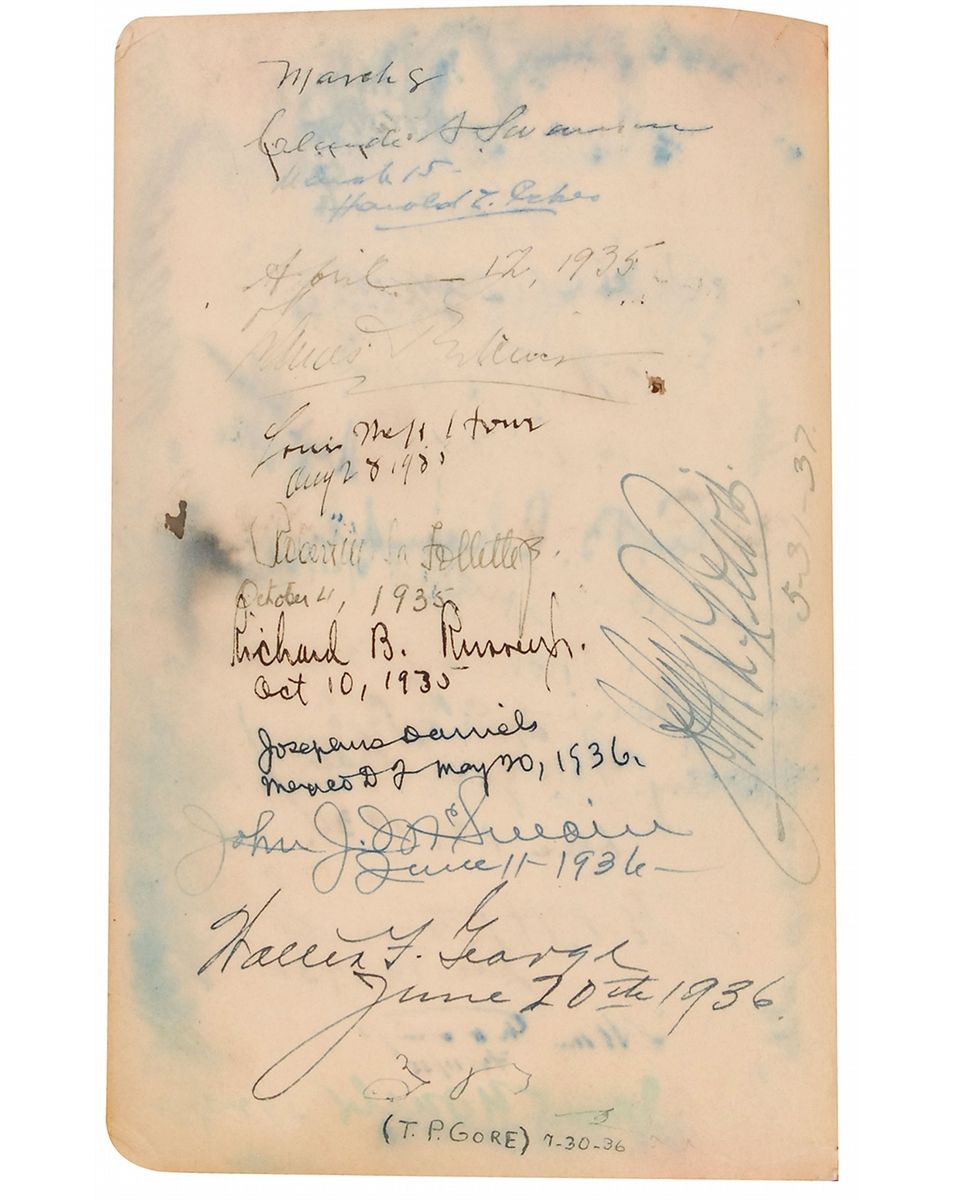 March 8
Claude A Swanson
March 15
Harold L. Ickes
April 12, 1935
Louis McH. Howe
Aug 28 1935
Robert M. La Follette Jr.
October 4, 1935
Richard B. Russell Jr.
Oct 10, 1935
Josephus Daniels
Mexico D F May 20, 1936.
John J. McSwain
June 11-1936-
Walter F. George
June 20th 1936.
(T. P. GORE) 7-30-36
5-31-37